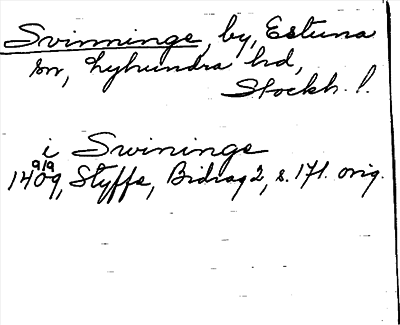 Svinninge, by, Estuna
sn, Lyhundra hd,
Stockh. l.
i Swininge
9/9
1409, Styffe, Bidrag 2, s. 171. orig.